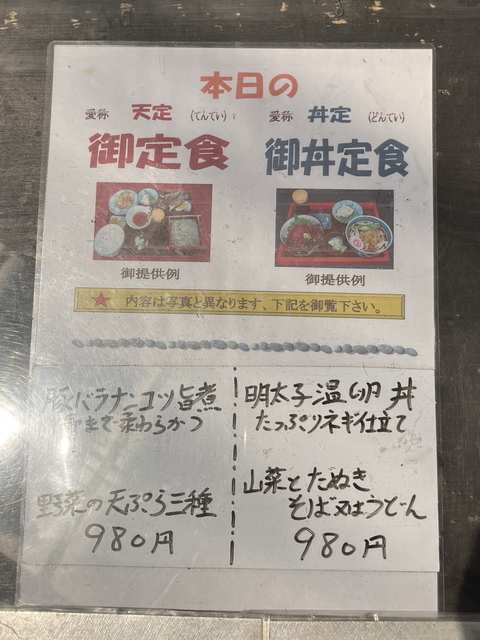 本日の
愛称 天定 (てんてい)
御定食
御提供例
愛称 丼定 (どんてい)
御丼定食
御提供例
★ 内容は写真と異なります、下記を御覧下さい。
豚バラナンコツ旨煮
まで柔わらかつ
野菜の天ぷら三種
980円
明太子温卵丼
たっぷりネギ仕立て
山菜とたぬき
そば又はうどん
980円